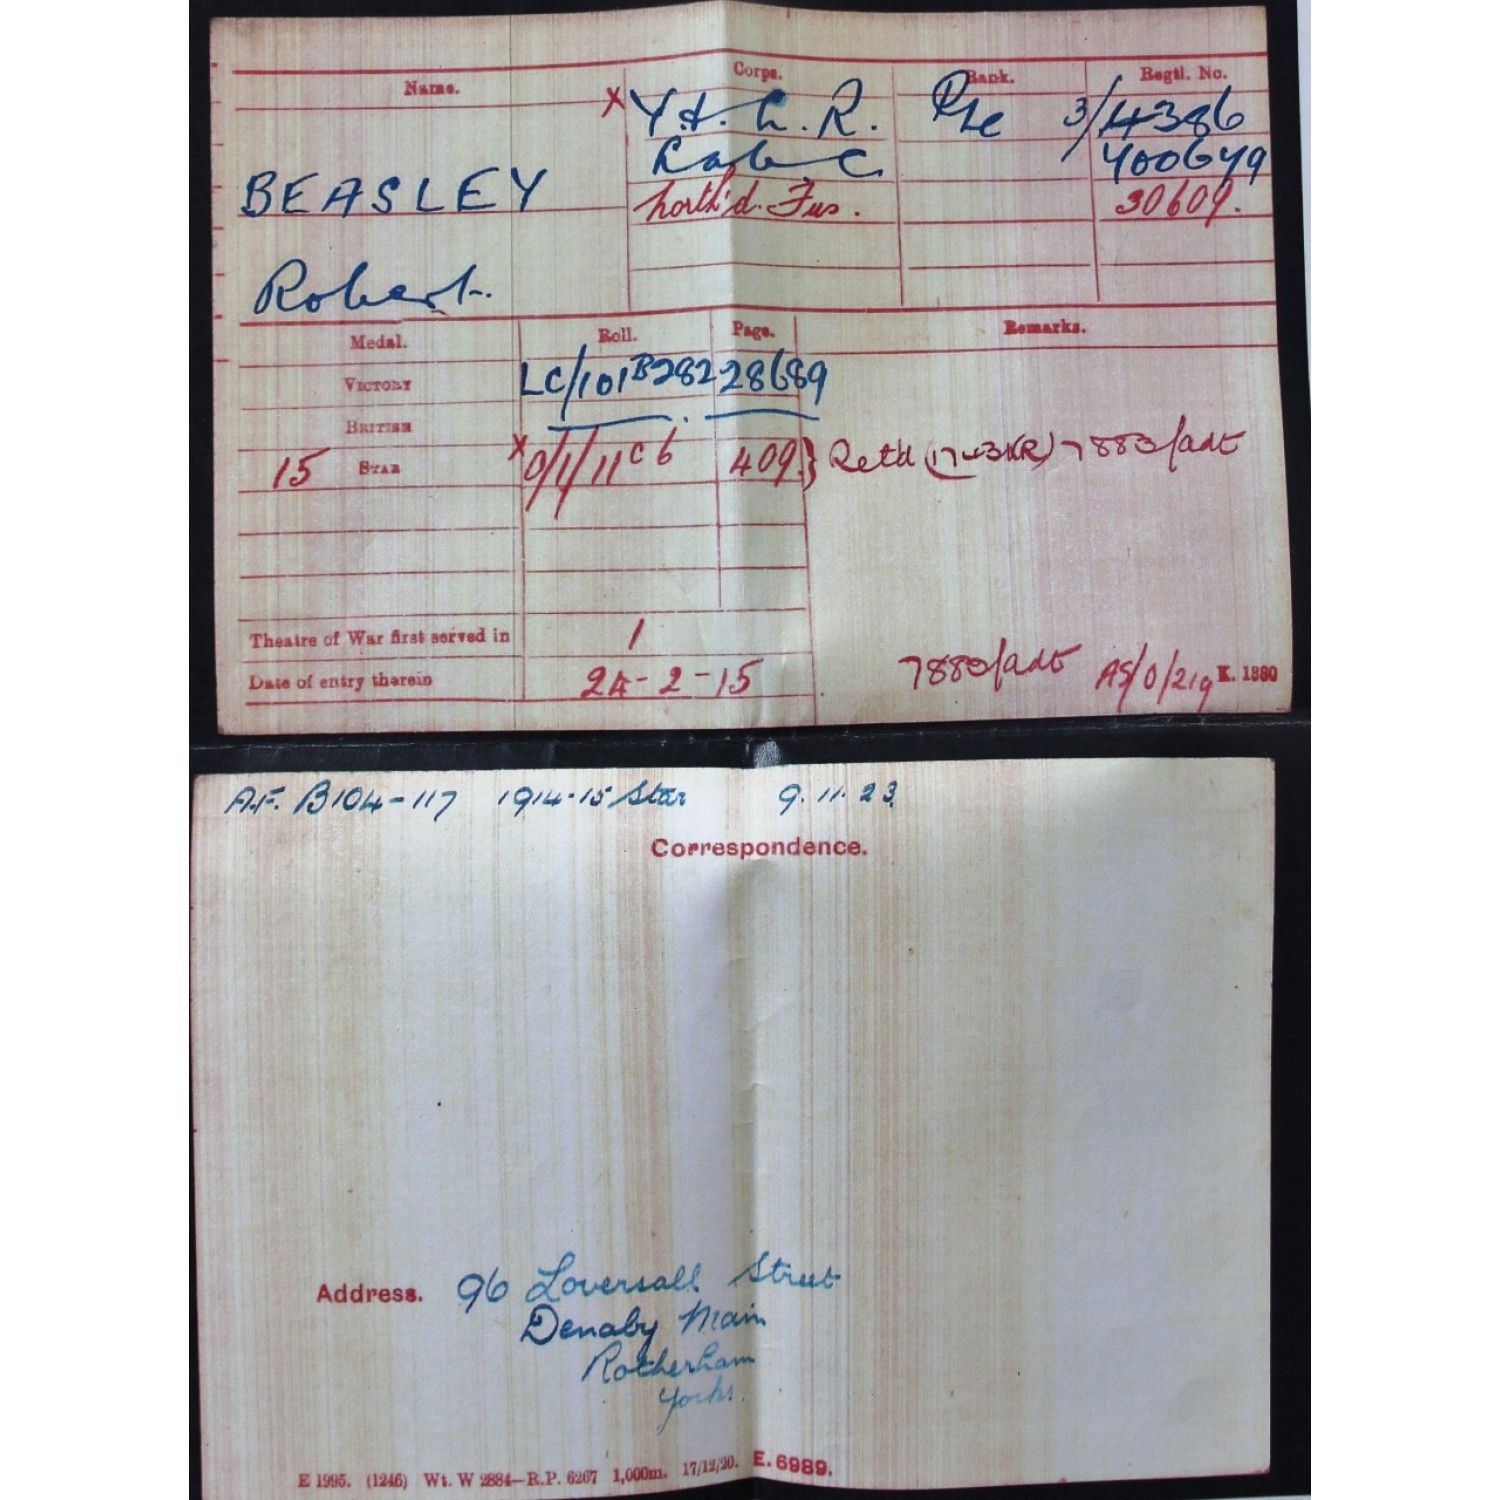 Name. Corps. Rank. Regtl. No.
X Y. & L. R. Pte 3/4386
Lab C. 400649
BEASLEY North'd. Fus. 30609.
Robert.
Medal. Roll. Page. Remarks.
VICTORY LC/101B282 28689
BRITISH
15 STAR X 0/1/11C6 409. } Ret'd (1743KR) 7883/adt
Theatre of War first served in 1
Date of entry therein 24-2-15 7883/adt AS/0/219 K. 1380
A.F. B104-117 1914-15 Star 9.11.23
Correspondence.
Address. 96 Loversall Street
Denaby Main
Rotherham
Yorks.
E 1995. (1246) Wt. W 2884—R.P. 6267 1,000m. 17/12/20. E. 6989.